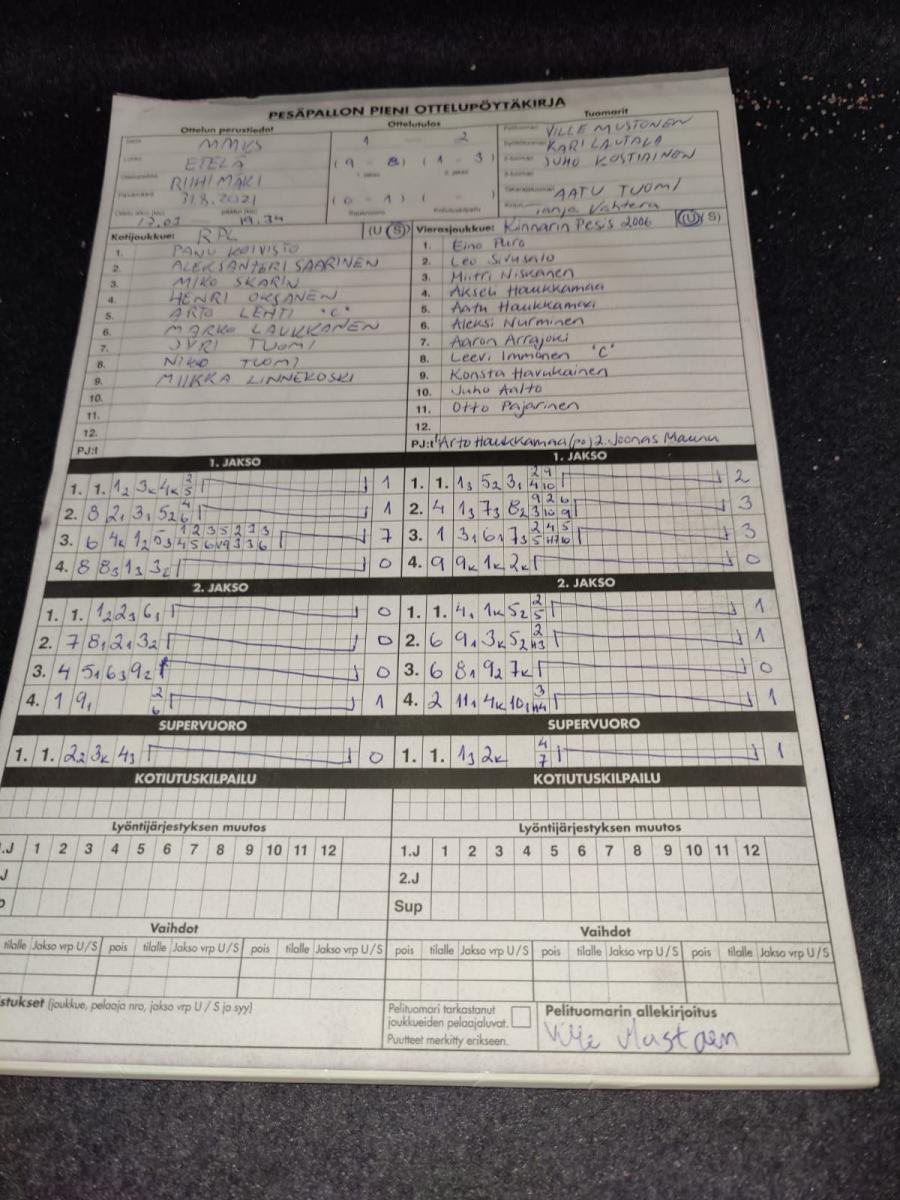 PESÄPALLON PIENI OTTELUPÖYTÄKIRJA
Ottelun perustiedot
Ottelutulos
Tuomarit
MMVS
1 - 2
VILLE MUSTONEN
ETELÄ
(9 - 8) (1 - 3)
KARI LAUTALA
RIIHIMÄKI
JUHO KOSTIAINEN
31.8.2021
(0 - 1) ( - )
AATU TUOMI
19.34
Tanja Vahtera
Kotijoukkue: RPL (U S)
1. PANU KOIVISTO
2. ALEKSANTERI SAARINEN
3. MIKO SKARIN
4. HENRI OKSANEN
5. ARTO LEHTI "C"
6. MARKO LAUKKANEN
7. JYRI TUOMI
8. NIKO TUOMI
9. MIIKKA LINNEKOSKI
10.
11.
12.
PJ:t
Vierasjoukkue: Kinnarin Pesis 2006 (U S)
1. Eino Puro
2. Leo Sivusalo
3. Miitri Niskanen
4. Akseli Haukkamaa
5. Aatu Haukkamaa
6. Aleksi Nurminen
7. Aaron Arrajoki
8. Leevi Immonen "C"
9. Konsta Havukainen
10. Juho Aalto
11. Otto Pajarinen
12.
PJ:t 1. Arto Haukkamaa (po) 2. Joonas Maunu
1. JAKSO
1. 1. 1₂ 3ₖ 4ₖ 2/5 1
2. 8 2₁ 3₁ 5₂ 4/6 1
3. 6 4ₖ 1₂ 5₃ 7
4. 8 8₃ 1₃ 3₂ 0
1. JAKSO
1. 1. 1₃ 5₂ 3₁ 2/4 9/10 2
2. 4 1₃ 7₃ 8₂ 9/3 2/10 6/9 3
3. 1 3₁ 6₁ 7₃ 2/5 4/H7 5/10 3
4. 9 9ₖ 1ₖ 2ₖ 0
2. JAKSO
1. 1. 1₂ 2₃ 6₁ 0
2. 7 8₁ 2₁ 3₂ 0
3. 4 5₁ 6₃ 9₂ 0
4. 1 9₁ 2/6 1
2. JAKSO
1. 1. 4₁ 1ₖ 5₂ 2/5 1
2. 6 9₁ 3ₖ 5₂ 2/H3 1
3. 6 8₁ 9₂ 7ₖ 0
4. 2 11₁ 4ₖ 10₁ 3/H4 1
SUPERVUORO
1. 1. 2₂ 3ₖ 4₃ 0
SUPERVUORO
1. 1. 1₃ 2ₖ 4/7 1
KOTIUTUSKILPAILU
KOTIUTUSKILPAILU
Lyöntijärjestyksen muutos
.J 1 2 3 4 5 6 7 8 9 10 11 12
J
Lyöntijärjestyksen muutos
1.J 1 2 3 4 5 6 7 8 9 10 11 12
2.J
Sup
Vaihdot
tilalle Jakso vrp U/S pois tilalle Jakso vrp U/S pois tilalle Jakso vrp U/S
Vaihdot
pois tilalle Jakso vrp U/S pois tilalle Jakso vrp U/S pois tilalle Jakso vrp U/S
istukset (joukkue, pelaaja nro, jakso vrp U / S ja syy)
Pelituomari tarkastanut
joukkueiden pelaajaluvat.
Puutteet merkitty erikseen.
Pelituomarin allekirjoitus